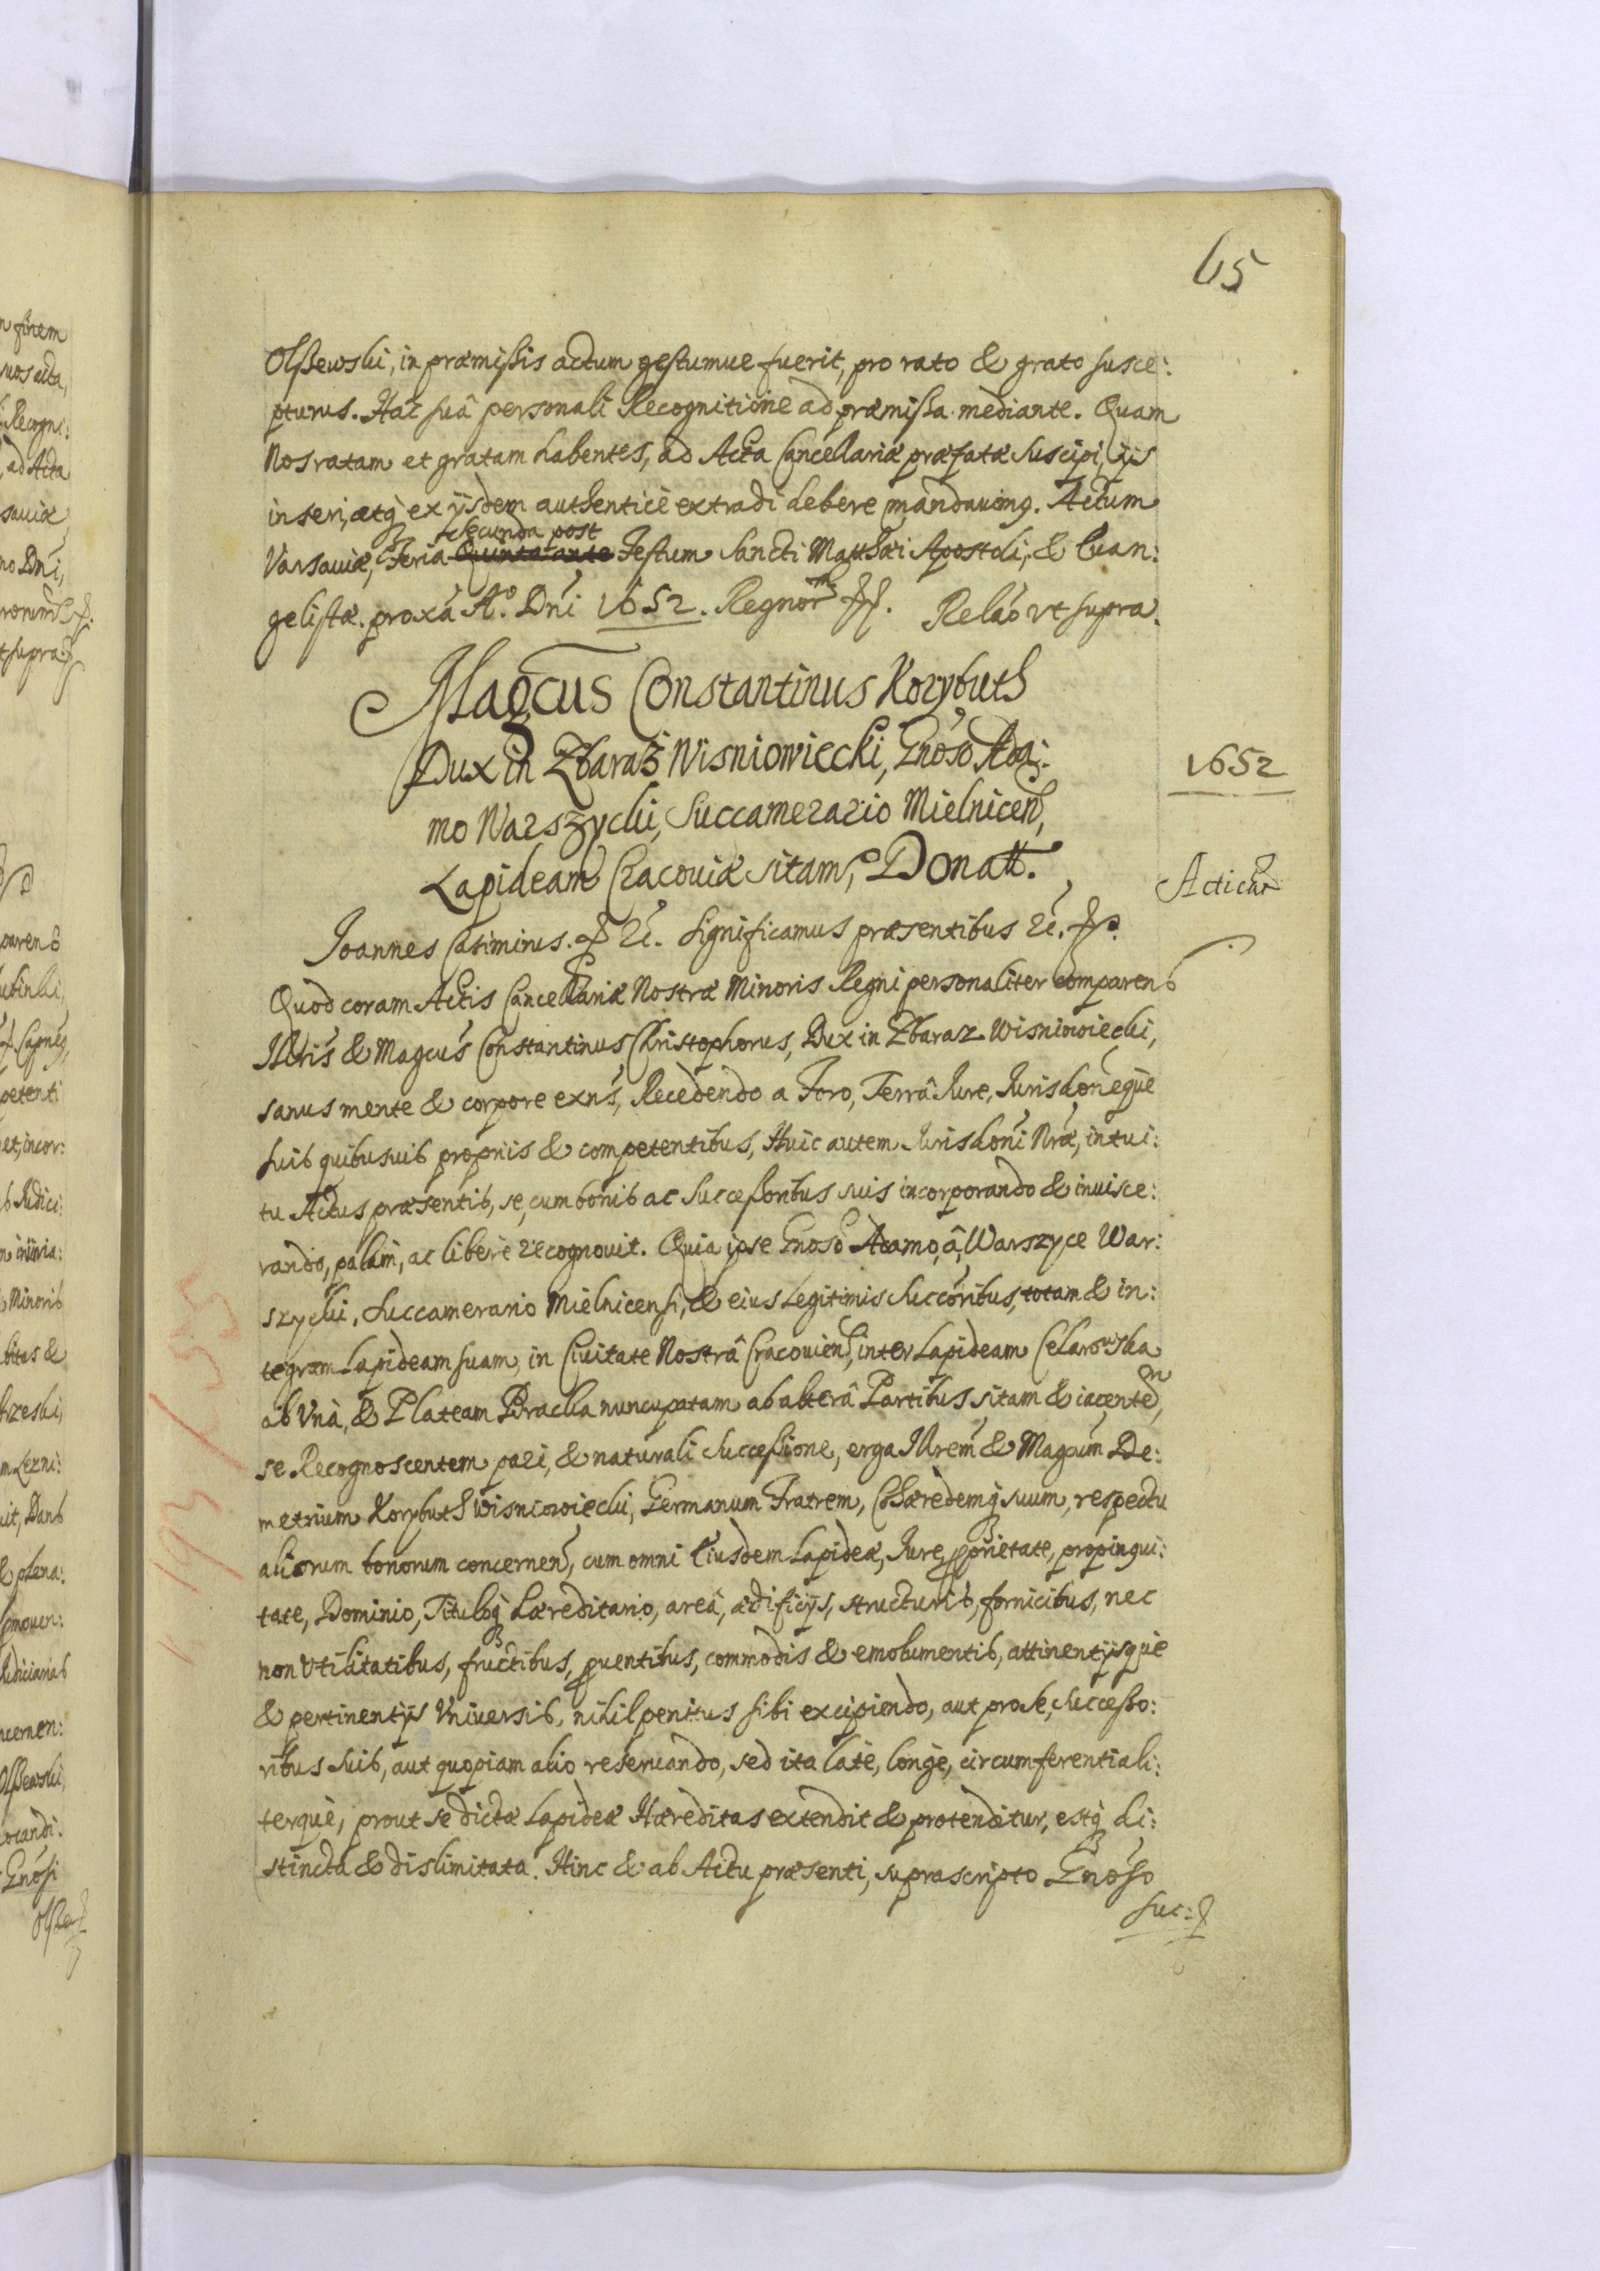 65
Olßewski, in præmißis actum gestumue fuerit, pro rato & grato susce:
pturus. Hac suâ personali Recognitione ad præmißa mediante. Quam
Nos ratam et gratam habentes, ad Acta Cancellariæ præfatæ suscipi, ijs
inseri, atq̃ ex ijsdem authenticè extradi debere mandauimg. Actum
secunda post
Varsauiæ, Feria Quinta ante Festum Sancti Matthæi Apostoli, & Euan:
gelistæ. proxá Aº. Dńi 1652. Regnorm Relaó vt supra.
Magcus Constantinus Korybuth
Dux in Zbaraż Wisniowiecki, Gnoso Ada:
mo Warszycki, Succamerario Mielnicen,
Lapideam Cracouiæ sitam, Donatt.
1652
Acticat
Joannes Casimirus. &c. Significamus præsentibus &c.
Quod coram Actis Cancellariæ Nostræ Minoris Regni personaliter comparens
Illtris & Magcus Constantinus Christophorus, Dux in Zbaraz Wisniowiecki,
sanus mente & corpore exns, Recedendo a Foro, Terrâ Iure, Iurisdoneque
suis quibusuis proprijs & competentibus, Huic autem Iurisdoni Nræ, intui:
tu Actus præsentis, se, cum bonis ac Succeßoribus suis incorporando & inuisce:
rando, palàm, ac liberè recognouit. Quia ipse Gnoso Adamo, â, Warszyce War:
szycki, Succamerario Mielnicensi, & eius Legitimis Succoribus, totam & in:
tegram Lapideam suam, in Ciuitate Nostrâ Cracouien, inter Lapideam Celarowska
ab Vnà, & Plateam Bracka nuncupatam ab alterâ Partibus sitam & iacentem,
se Recognoscentem pari, & naturali Succeßione, erga Illrem & Magcum De:
metrium Korybuth Wisniowiecki, Germanum Fratrem, Cohæredemq̃ suum, respectu
aliorum bonorum concernen, cum omni Eiusdem Lapideæ, Iure, proprietate, propinqui:
tate, Dominio, Tituloq̃ hæreditario, areâ, ædificijs, structuris, fornicibus, nec
non Vtilitatibus, fructibus, prouentibus, commodis & emolumentis, attinentijsque
& pertinentijs Vniuersis, nihil penitus sibi excipiendo, aut pro se, Succeßo:
ribus suis, aut quopiam alio reseruando, sed ita latè, longè, circumferentiali:
terquè, prout se dictæ Lapideæ Hæreditas extendit & protenditur, estq̃ di:
stincta & dislimitata. Hinc & ab Actu præsenti, suprascripto Gnoso
suc: